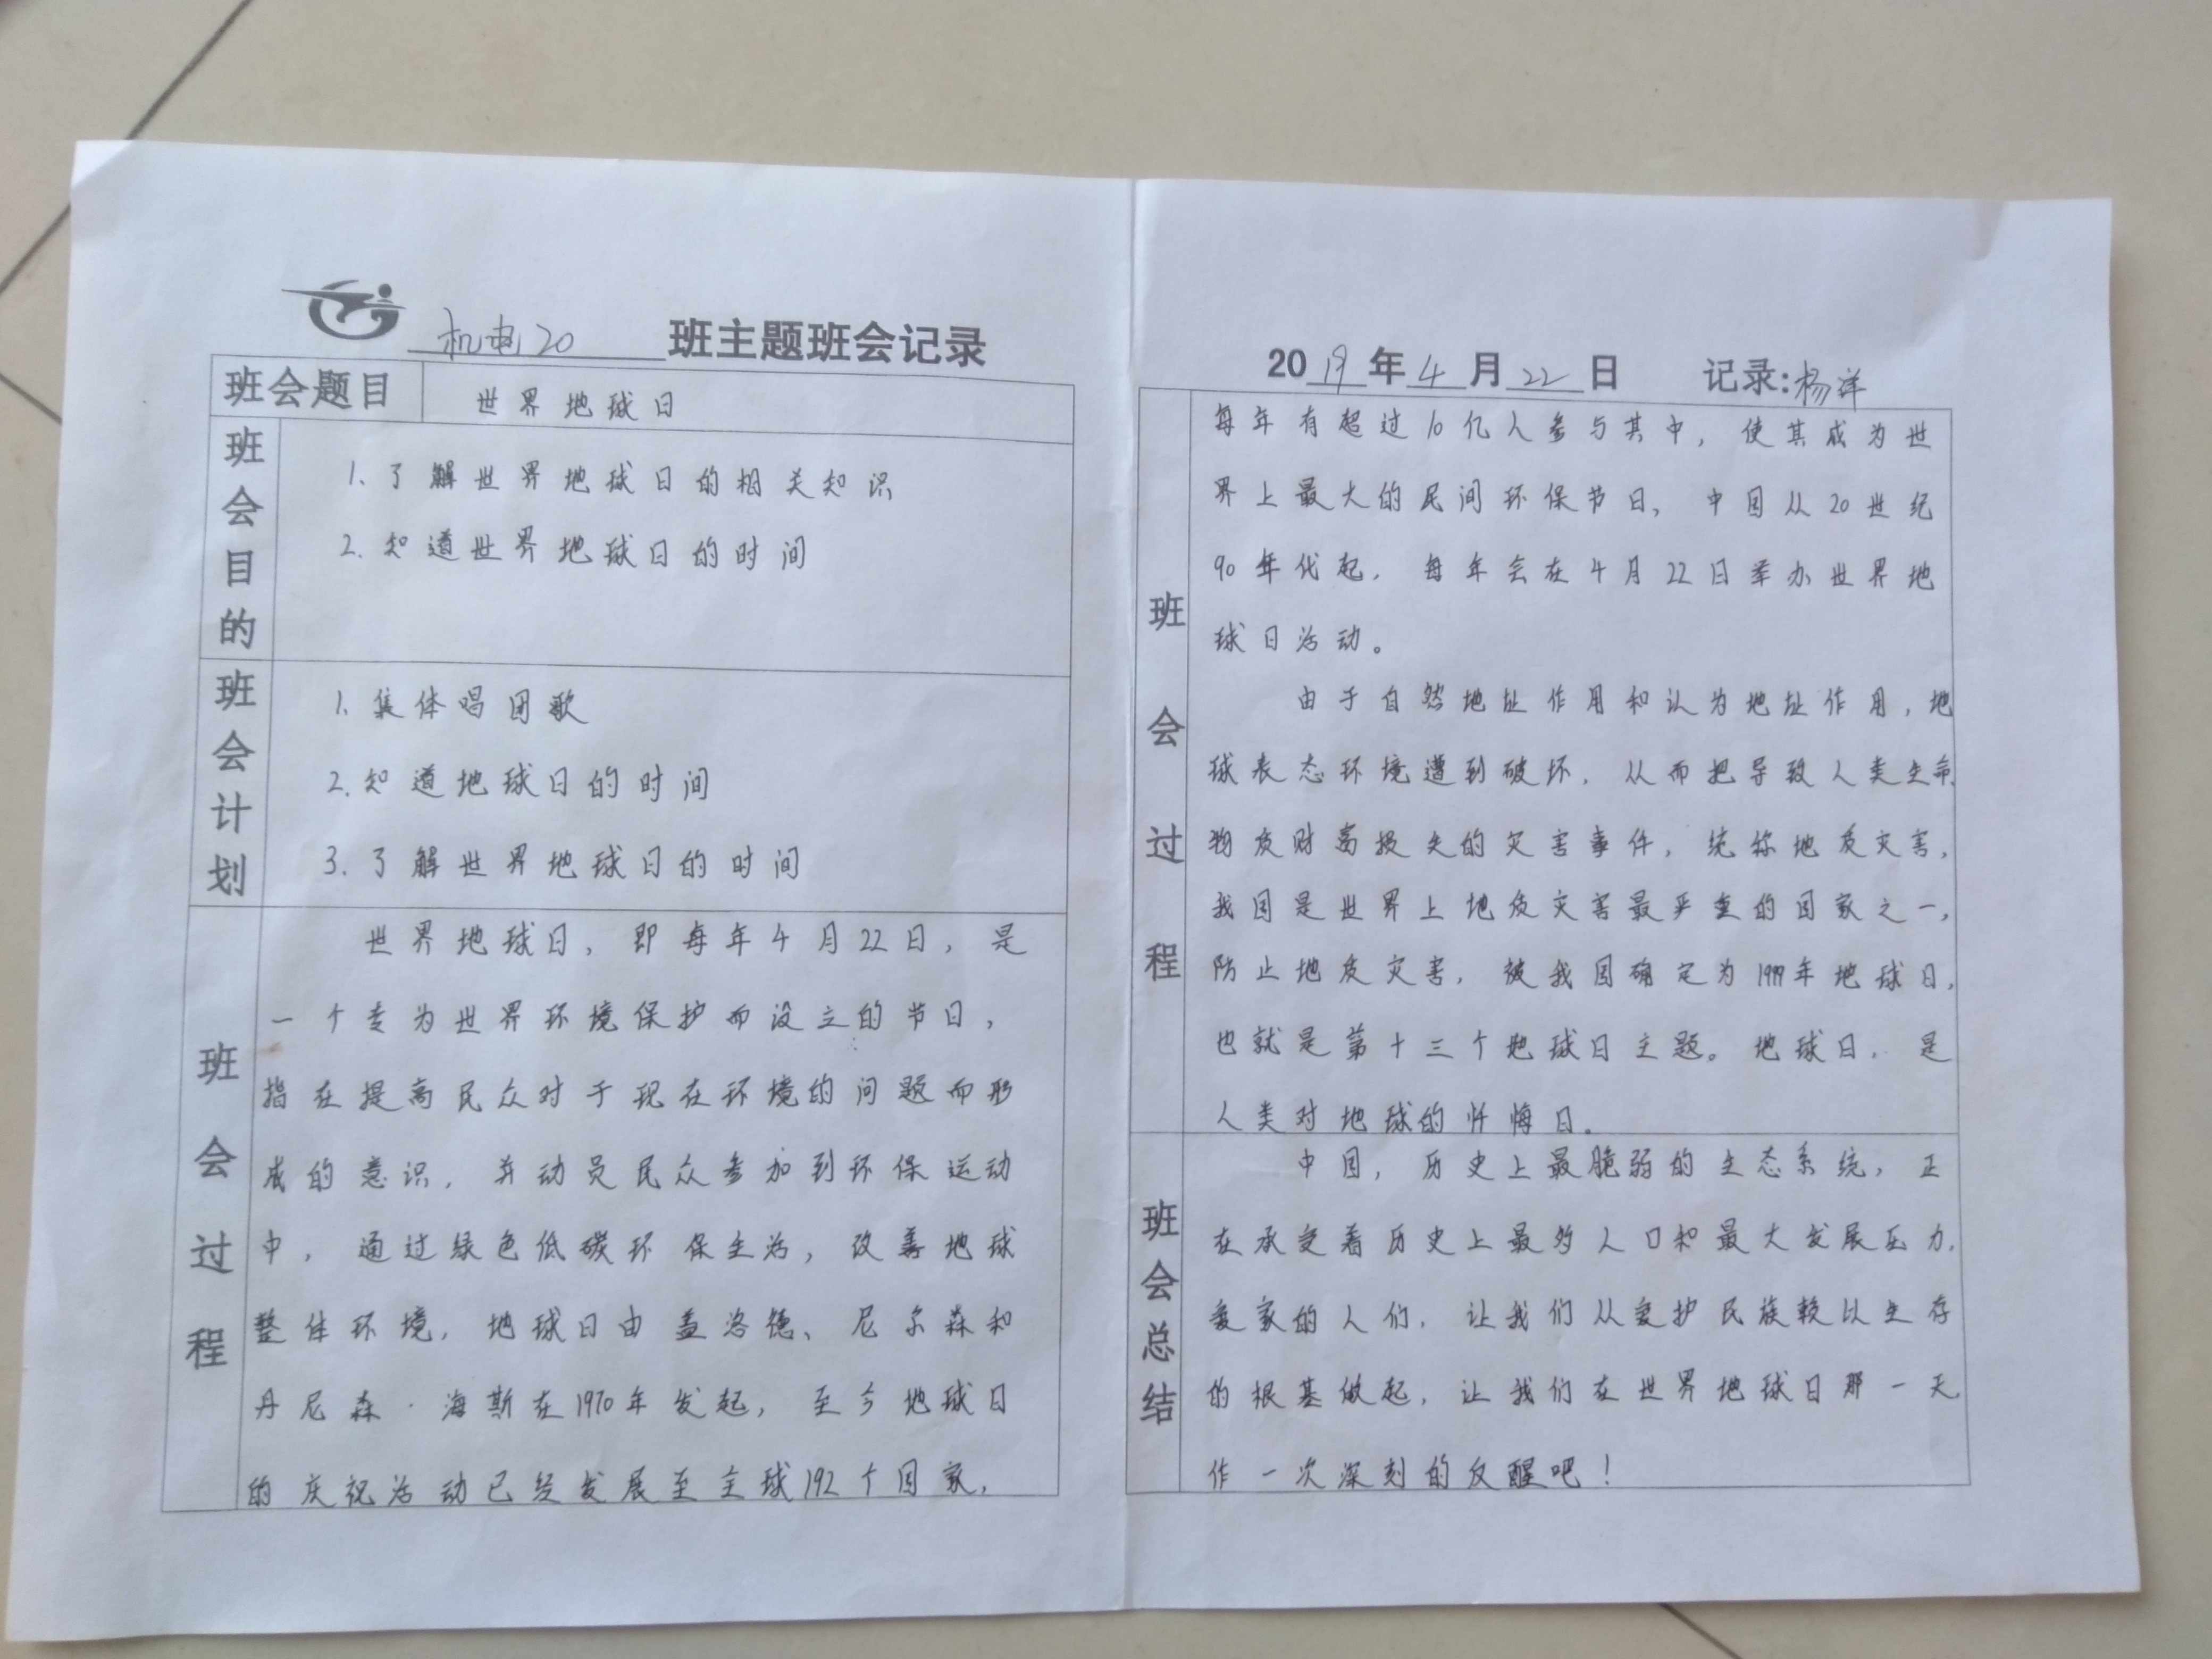 机电20 班主题班会记录
班会题目 世界地球日
班会目的
1.了解世界地球日的相关知识
2.知道世界地球日的时间
班会计划
1.集体唱团歌
2.知道地球日的时间
3.了解世界地球日的时间
班会过程
世界地球日，即每年4月22日，是
一个专为世界环境保护而设立的节日，
指在提高民众对于现在环境的问题而形
成的意识，并动员民众参加到环保运动
中，通过绿色低碳环保生活，改善地球
整体环境，地球日由盖洛德、尼尔森和
丹尼森·海斯在1970年发起，至今地球日
的庆祝活动已经发展至全球192个国家，
2019年4月22日 记录:杨洋
班会过程
每年有超过10亿人参与其中，使其成为世
界上最大的民间环保节日，中国从20世纪
90年代起，每年会在4月22日举办世界地
球日活动。
由于自然地址作用和认为地址作用，地
球表态环境遭到破坏，从而把导致人类生命、
物质财富损失的灾害事件，统称地质灾害，
我国是世界上地质灾害最严重的国家之一，
防止地质灾害，被我国确定为1999年地球日，
也就是第十三个地球日主题。地球日，是
人类对地球的忏悔日。
班会总结
中国，历史上最脆弱的生态系统，正
在承受着历史上最多人口和最大发展压力，
爱家的人们，让我们从爱护民族赖以生存
的根基做起，让我们在世界地球日那一天
作一次深刻的反醒吧！